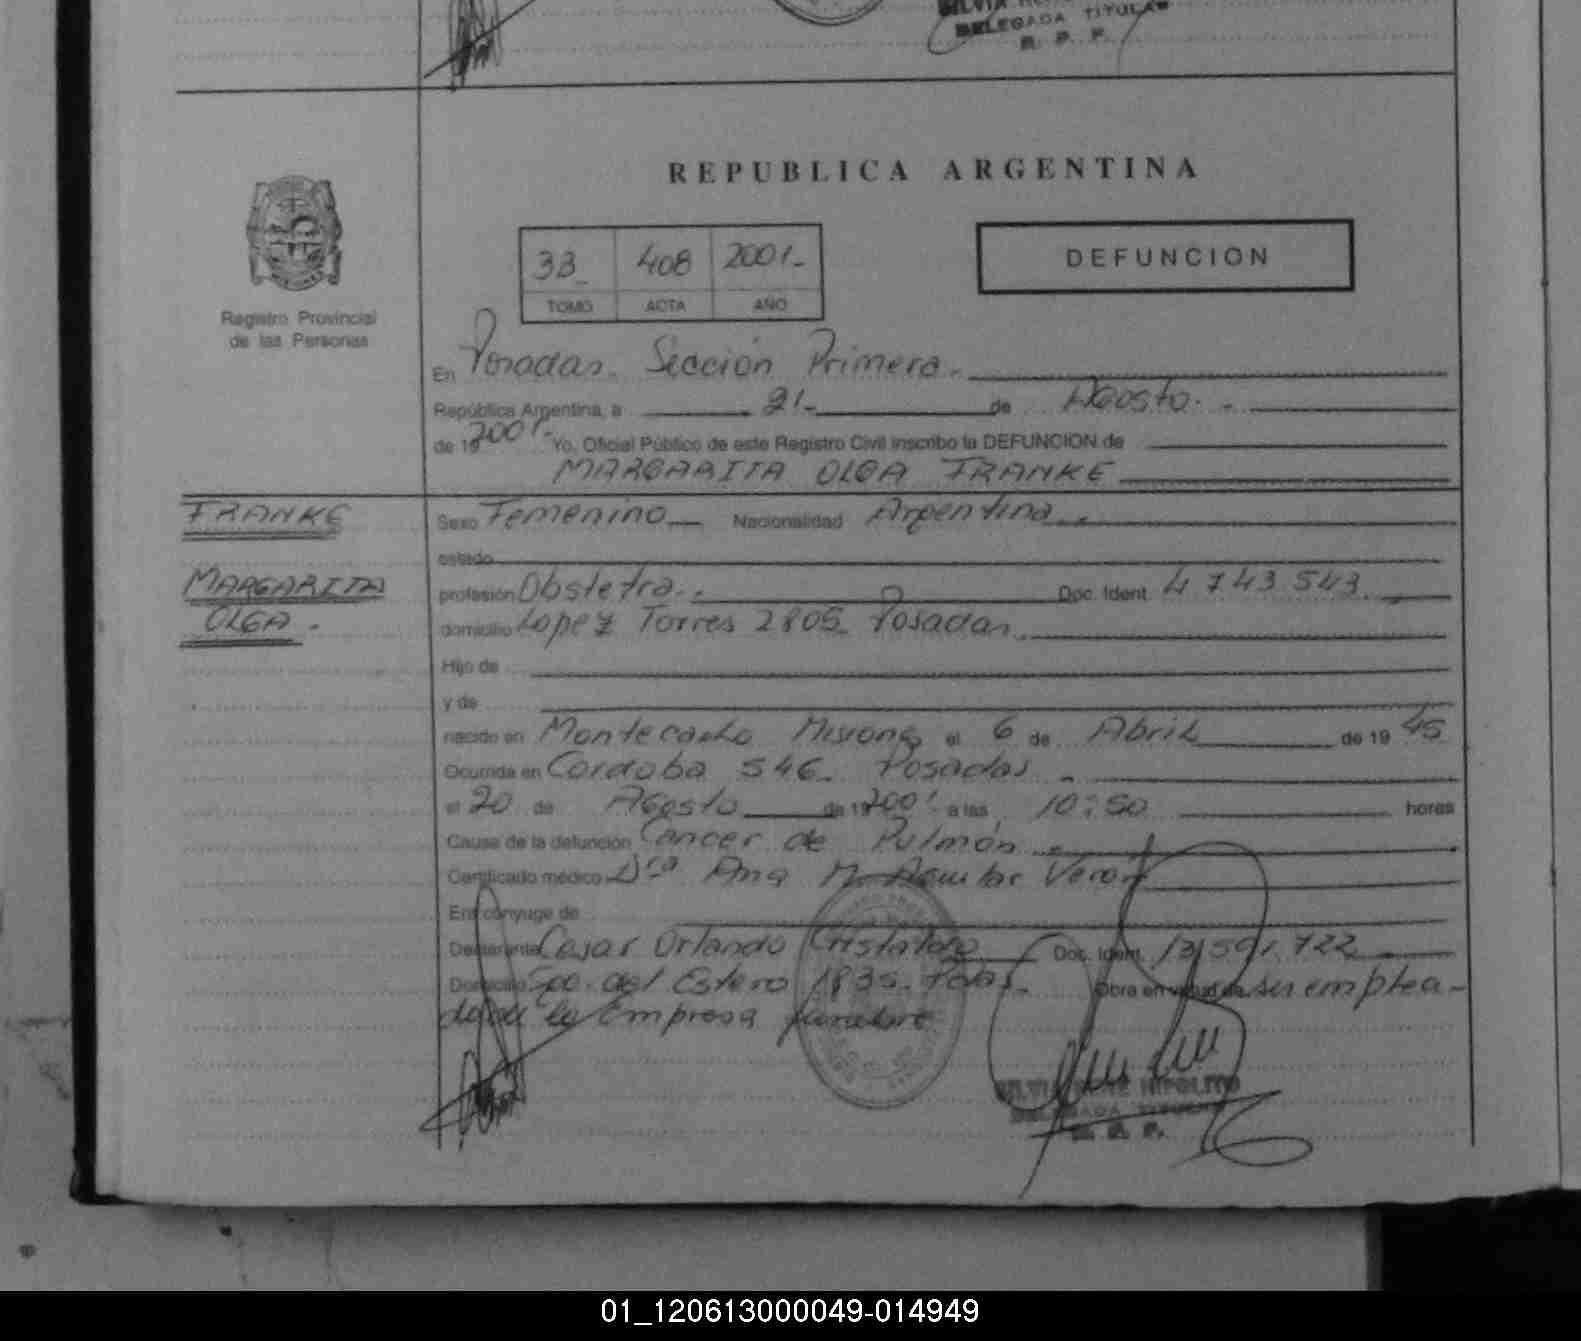 DELEGADA TITULAR
R. P. P.
REPUBLICA ARGENTINA
33_ 408 2001-
TOMO ACTA AÑO
DEFUNCION
Registro Provincial
de las Personas
En Posadas. Sección Primera.
República Argentina, a 21- de Agosto.
de 19 2001- Yo, Oficial Público de este Registro Civil inscribo la DEFUNCION de
MARGARITA OLGA FRANKE
FRANKE
MARGARITA
OLGA.
Sexo Femenino Nacionalidad Argentina.
estado
profesión Obstetra. Doc. Ident. 4 743 543.
domicilio Lopez Torres 2805. Posadas.
Hijo de
y de
nacido en Montecarlo Misiones el 6 de Abril de 19 45
Ocurrida en Cordoba 546. Posadas.
el 20 de Agosto de 19 2001 a las 10:50 horas
Causa de la defunción Cancer de Pulmón.
Certificado médico Dra Ana M. Aguilar Veron
Era cónyuge de
Declarante Cesar Orlando Cristaldo Doc. Ident. 13,591.722
Domicilio Sgo. del Estero 1835. Pdas. Obra en virtud de ser emplea-
do de la Empresa funebre
HIPOLITO
DELEGADA TITULAR
R. P. P.
01_120613000049-014949